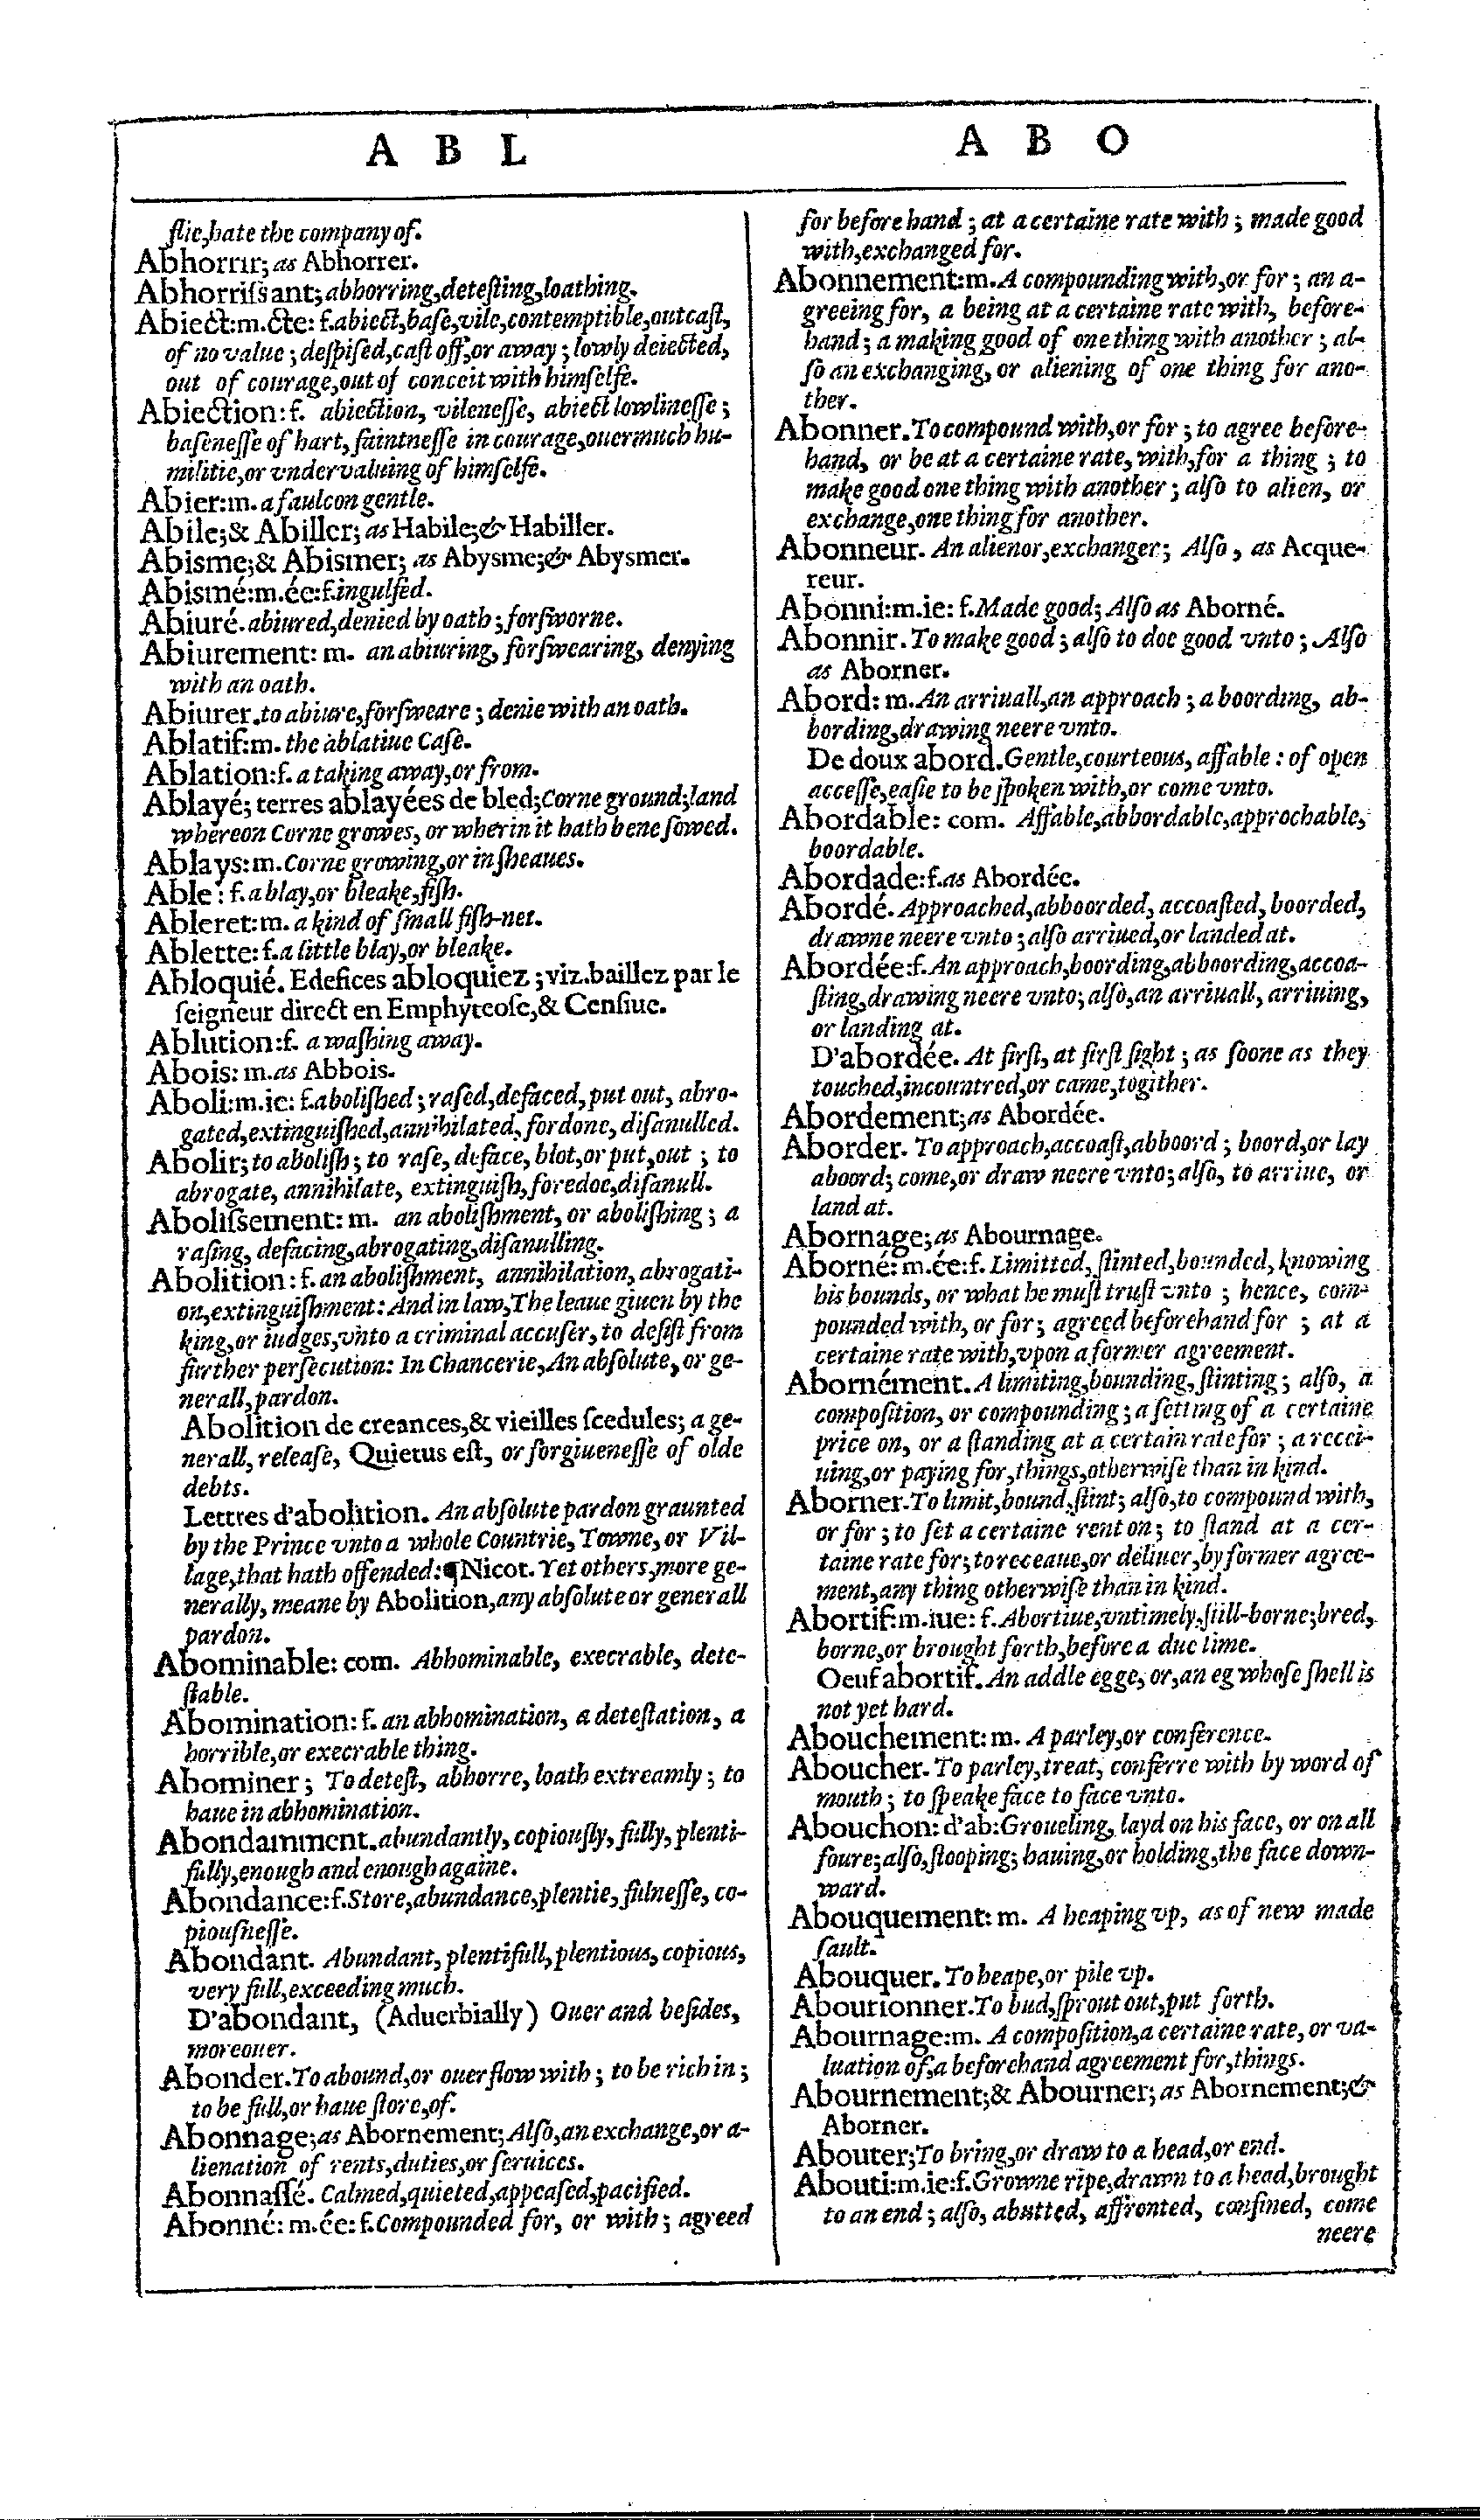 A B L
ſlie,hate the company of.
Abhorrir; as Abhorrer.
Abhorriſsant; abhorring,deteſting,loathing.
Abiect:m.cte: f.abiect,baſe,vile,contemptible,outcaſt,
of no value; deſpiſed,caſt off,or away; lowly deiected,
out of courage,out of conceit with himſelfe.
Abiection: f. abiection, vileneſſe, abiect lowlineſſe;
baſeneſſe of hart, faintneſſe in courage,ouermuch hu-
militie,or vndervaluing of himſelfe.
Abier:m. a faulcon gentle.
Abile;& Abiller; as Habile;& Habiller.
Abisme;& Abismer; as Abysme;& Abysmer.
Abismé:m.ée:f.ingulfed.
Abiuré. abiured,denied by oath; forſworne.
Abiurement: m. an abiuring, forſwearing, denying
with an oath.
Abiurer.to abiure,forſweare; denie with an oath.
Ablatif:m. the ablatiue Caſe.
Ablation:f. a taking away,or from.
Ablayé; terres ablayées de bled;Corne ground;land
whereon Corne growes, or wherin it hath bene ſowed.
Ablays:m.Corne growing,or in ſheaues.
Able: f.a blay,or bleake,fiſh.
Ableret:m. a kind of ſmall fiſh-net.
Ablette: f.a little blay,or bleake.
Abloquié. Edefices abloquiez; viz.baillez par le
ſeigneur direct en Emphyteoſe,& Cenſiue.
Ablution:f. a waſhing away.
Abois: m.as Abbois.
Aboli:m.ie: f.aboliſhed; raſed,defaced,put out, abro-
gated,extinguiſhed,annihilated, fordone, diſanulled.
Abolir;to aboliſh; to raſe, deface, blot,or put,out; to
abrogate, annihilate, extinguiſh,foredoe,diſanull.
Aboliſsement: m. an aboliſhment, or aboliſhing; a
raſing, defacing,abrogating,diſanulling.
Abolition: f. an aboliſhment, annihilation, abrogati-
on,extinguiſhment: And in law,The leaue giuen by the
king,or iudges,vnto a criminal accuſer, to deſiſt from
further perſecution: In Chancerie,An abſolute, or ge-
nerall,pardon.
Abolition de creances,& vieilles ſcedules; a ge-
nerall, releaſe, Quietus eſt, or forgiueneſſe of olde
debts.
Lettres d'abolition. An abſolute pardon graunted
by the Prince vnto a whole Countrie, Towne, or Vil-
lage,that hath offended:¶Nicot. Yet others,more ge-
nerally, meane by Abolition,any abſolute or generall
pardon.
Abominable: com. Abhominable, execrable, dete-
ſtable.
Abomination: f. an abhomination, a deteſtation, a
horrible,or execrable thing.
Abominer; To deteſt, abhorre, loath extreamly; to
haue in abhomination.
Abondamment. abundantly, copiouſly, fully, plenti-
fully,enough and enough againe.
Abondance:f.Store,abundance,plentie, fulneſſe, co-
piouſneſſe.
Abondant. Abundant, plentifull,plentious, copious,
very full,exceeding much.
D'abondant, (Aduerbially) Ouer and beſides,
moreouer.
Abonder.To abound,or ouerflow with; to be rich in;
to be full,or haue ſtore,of.
Abonnage;as Abornement; Alſo,an exchange,or a-
lienation of rents,duties,or ſeruices.
Abonnaſſé. Calmed,quieted,appeaſed,pacified.
Abonné: m.ée: f.Compounded for, or with; agreed
A B O
for before hand; at a certaine rate with; made good
with,exchanged for.
Abonnement:m. A compounding with,or for; an a-
greeing for, a being at a certaine rate with, before-
hand; a making good of one thing with another; al-
ſo an exchanging, or aliening of one thing for ano-
ther.
Abonner. To compound with,or for; to agree before-
hand, or be at a certaine rate, with,for a thing; to
make good one thing with another; alſo to alien, or
exchange,one thing for another.
Abonneur. An alienor,exchanger; Alſo, as Acque-
reur.
Abonni:m.ie: f.Made good; Alſo as Aborné.
Abonnir. To make good; alſo to doe good vnto; Alſo
as Aborner.
Abord: m. An arriuall,an approach; a boording, ab-
bording,drawing neere vnto.
De doux abord.Gentle,courteous, affable: of open
acceſſe,eaſie to be ſpoken with,or come vnto.
Abordable: com. Affable,abbordable,approchable,
boordable.
Abordade:f.as Abordée.
Abordé. Approached,abboorded, accoaſted, boorded,
drawne neere vnto; alſo arriued,or landed at.
Abordée:f.An approach,boording,abboording,accoa-
ſting,drawing neere vnto; alſo,an arriuall, arriuing,
or landing at.
D'abordée. At firſt, at firſt ſight; as ſoone as they
touched,incountred,or came,togither.
Abordement;as Abordée.
Aborder. To approach,accoaſt,abboord; boord,or lay
aboord; come,or draw neere vnto; alſo, to arriue, or
land at.
Abornage;as Abournage.
Aborné: m.ée:f. Limitted, ſtinted,bounded, knowing
his bounds, or what he muſt truſt vnto; hence, com-
pounded with, or for; agreed beforehand for; at a
certaine rate with,vpon a former agreement.
Abornément. A limiting,bounding, ſtinting; alſo, a
compoſition, or compounding; a ſetting of a certaine
price on, or a ſtanding at a certain rate for; a recei-
uing,or paying for,things,otherwiſe than in kind.
Aborner.To limit,bound,ſtint; alſo,to compound with,
or for; to ſet a certaine rent on; to ſtand at a cer-
taine rate for; to receaue,or deliuer,by former agree-
ment,any thing otherwiſe than in kind.
Abortif:m.iue: f.Abortiue,vntimely,ſtill-borne;bred,
borne,or brought forth,before a due time.
Oeuf abortif. An addle egge, or,an eg whoſe ſhell is
not yet hard.
Abouchement: m. A parley,or conference.
Aboucher. To parley,treat, conferre with by word of
mouth; to ſpeake face to face vnto.
Abouchon: d'ab:Groueling, layd on his face, or on all
foure;alſo,ſtooping; hauing,or holding,the face down-
ward.
Abouquement: m. A heaping vp, as of new made
ſault.
Abouquer. To heape,or pile vp.
Abourionner.To bud,ſprout out,put forth.
Abournage:m. A compoſition,a certaine rate, or va-
luation of,a beforehand agreement for,things.
Abournement;& Abourner; as Abornement;&
Aborner.
Abouter;To bring,or draw to a head,or end.
Abouti:m.ie:f.Growne ripe,drawn to a head,brought
to an end; alſo, abutted, affronted, confined, come
neere